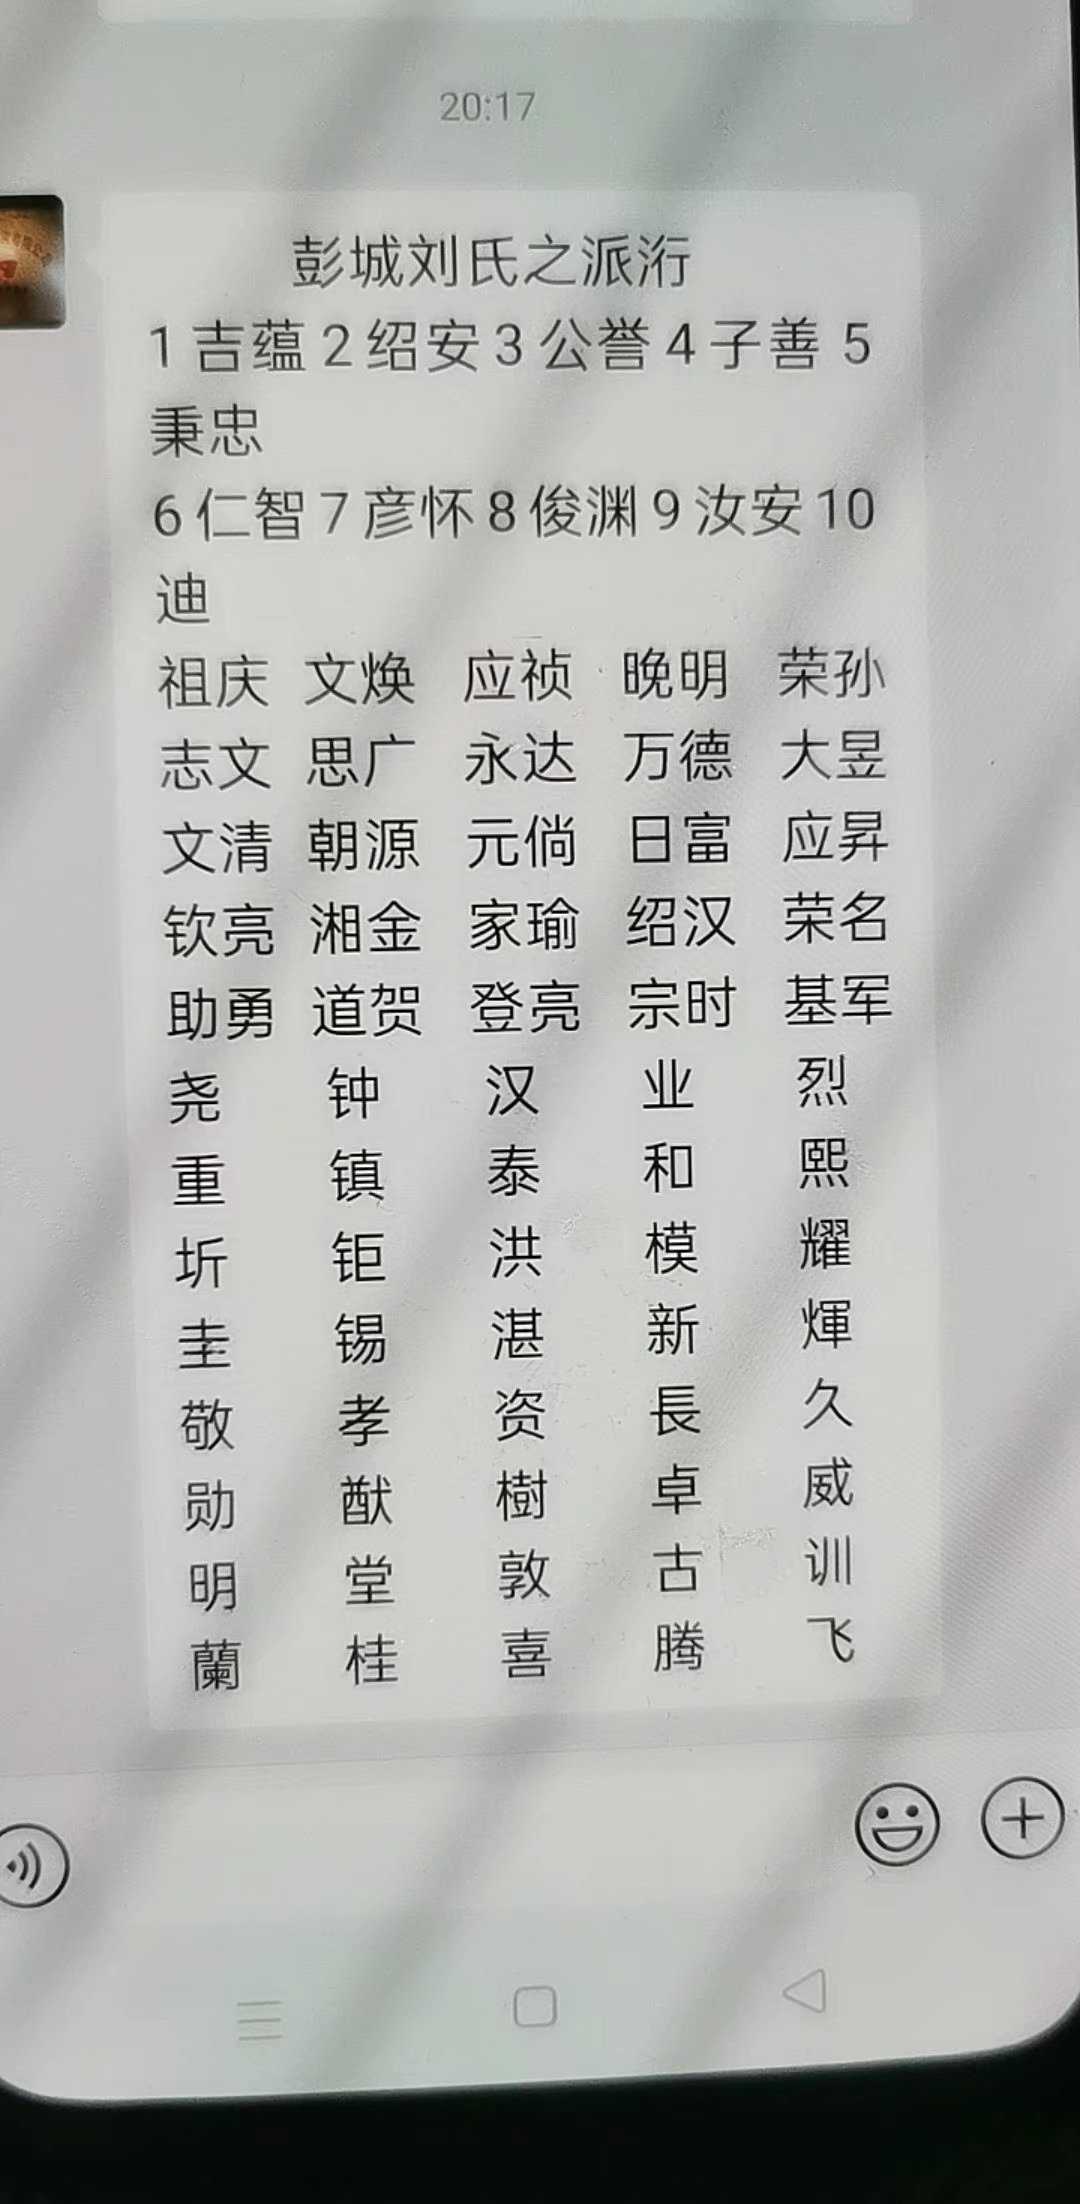 20:17
彭城刘氏之派洐
1 吉蕴 2 绍安 3 公誉 4 子善 5
秉忠
6 仁智 7 彦怀 8 俊渊 9 汝安 10
迪
祖庆 文焕 应祯 晚明 荣孙
志文 思广 永达 万德 大昱
文清 朝源 元倘 日富 应昇
钦亮 湘金 家瑜 绍汉 荣名
助勇 道贺 登亮 宗时 基军
尧 钟 汉 业 烈
重 镇 泰 和 熙
圻 钜 洪 模 耀
圭 锡 湛 新 煇
敬 孝 资 長 久
勋 猷 樹 卓 威
明 堂 敦 古 训
蘭 桂 喜 腾 飞